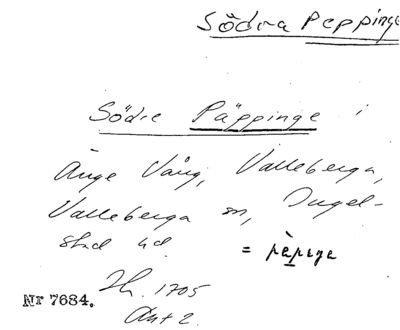 Södra Peppinge
Södre Päppinge i
Änge Vång, Valleberga,
Valleberga sn, Ingel-
stad hd. = pèpiŋe
Lh. 1705
Akt 2.
Nr 7684.